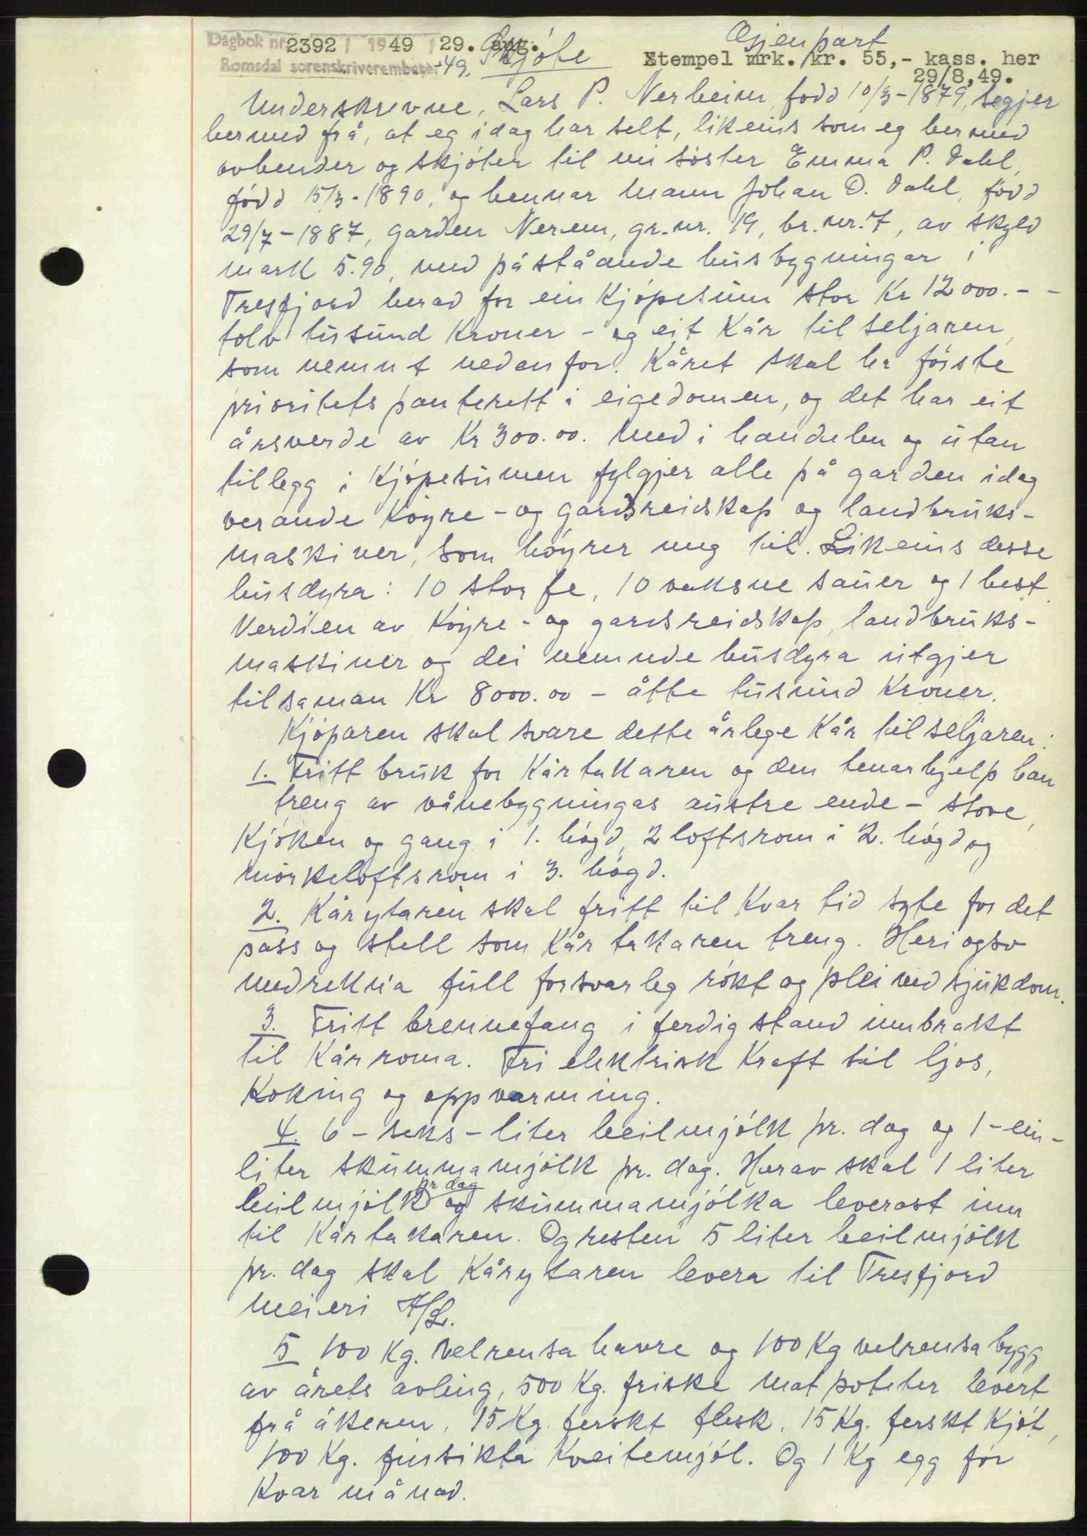 Dagbok nr. 2392 1949 29. aug.
Romsdal sorenskriverembete -49.
Skjöte
Gjenpart
Stempel mrk. kr. 55,- kass. her
29/8.49.
Underskrevne, Lars P. Nerheim, född 10/3-1879, segjer
hermed frå, at eg idag har selt, likeins som eg hermed
avhender og skjöter til mi söster Emma P. Dahl,
född 15/3-1890, og hennar mann Johan O. Dahl, född
29/7-1887, garden Nerem, gr.nr. 19, br.nr. 7, av skyld
mark 5.90, med påståande husbygningar i
Tresfjord herad for ein Kjöpesum stor Kr 12000.- -
tolv tusund Kroner - og eit Kår til seljaren,
som nemnt nedanfor. Kåret skal ha förste
prioritets panterett i eigedomen, og det har eit
årsverde av Kr 300.00. Med i handelen og utan
tillegg i Kjöpesumen fylgjer alle på garden idag
verande Köyre- og gardsreidskap og landbruks-
maskiner, som höyrer meg til. Likeins desse
husdyra: 10 storfe, 10 vaksne sauer og 1 hest.
Verdien av Köyre- og gardsreidskap, landbruks-
maskiner og dei nemnde husdyra utgjer
tilsaman Kr 8000.00 - åtte tusund Kroner.
Kjöparen skal svare dette årlege Kår til seljaren:
1. Fritt bruk for Kårtakaren og den tenarhjelp han
treng av vånebygningas austre ende - stove,
Kjöken og gang i 1. högd, 2 loftsrom i 2. högd og
mörkeloftsrom i 3. högd.
2. Kårytaren skal fritt til Kvar tid syte for det
pass og stell som Kårtakaren treng. Heri ogso
medrekna full forsvarleg rökt og plei ved sjukdom.
3. Fritt brennefang i ferdig stand innbrakt
til Kårroma. Fri elektrisk Kraft til ljos,
Koking og oppvarming.
4. 6 - seks - liter heilmjölk pr. dag og 1 - ein -
liter skummamjölk pr. dag. Herav skal 1 liter
pr dag
heilmjölk og skummamjölka leverast inn
til Kårtakaren. Og resten 5 liter heilmjölk
pr. dag skal Kårytaren levera til Tresfjord
Meieri A/L.
5 100 Kg. velrensa havre og 100 Kg velrensa bygg
av årets avling, 500 Kg. friske matpoteter levert
frå åkeren, 15 Kg. ferskt flesk, 15 Kg. ferskt Kjöt,
100 Kg. finsikta Kveitemjöl. Og 1 Kg egg for
Kvar månad.